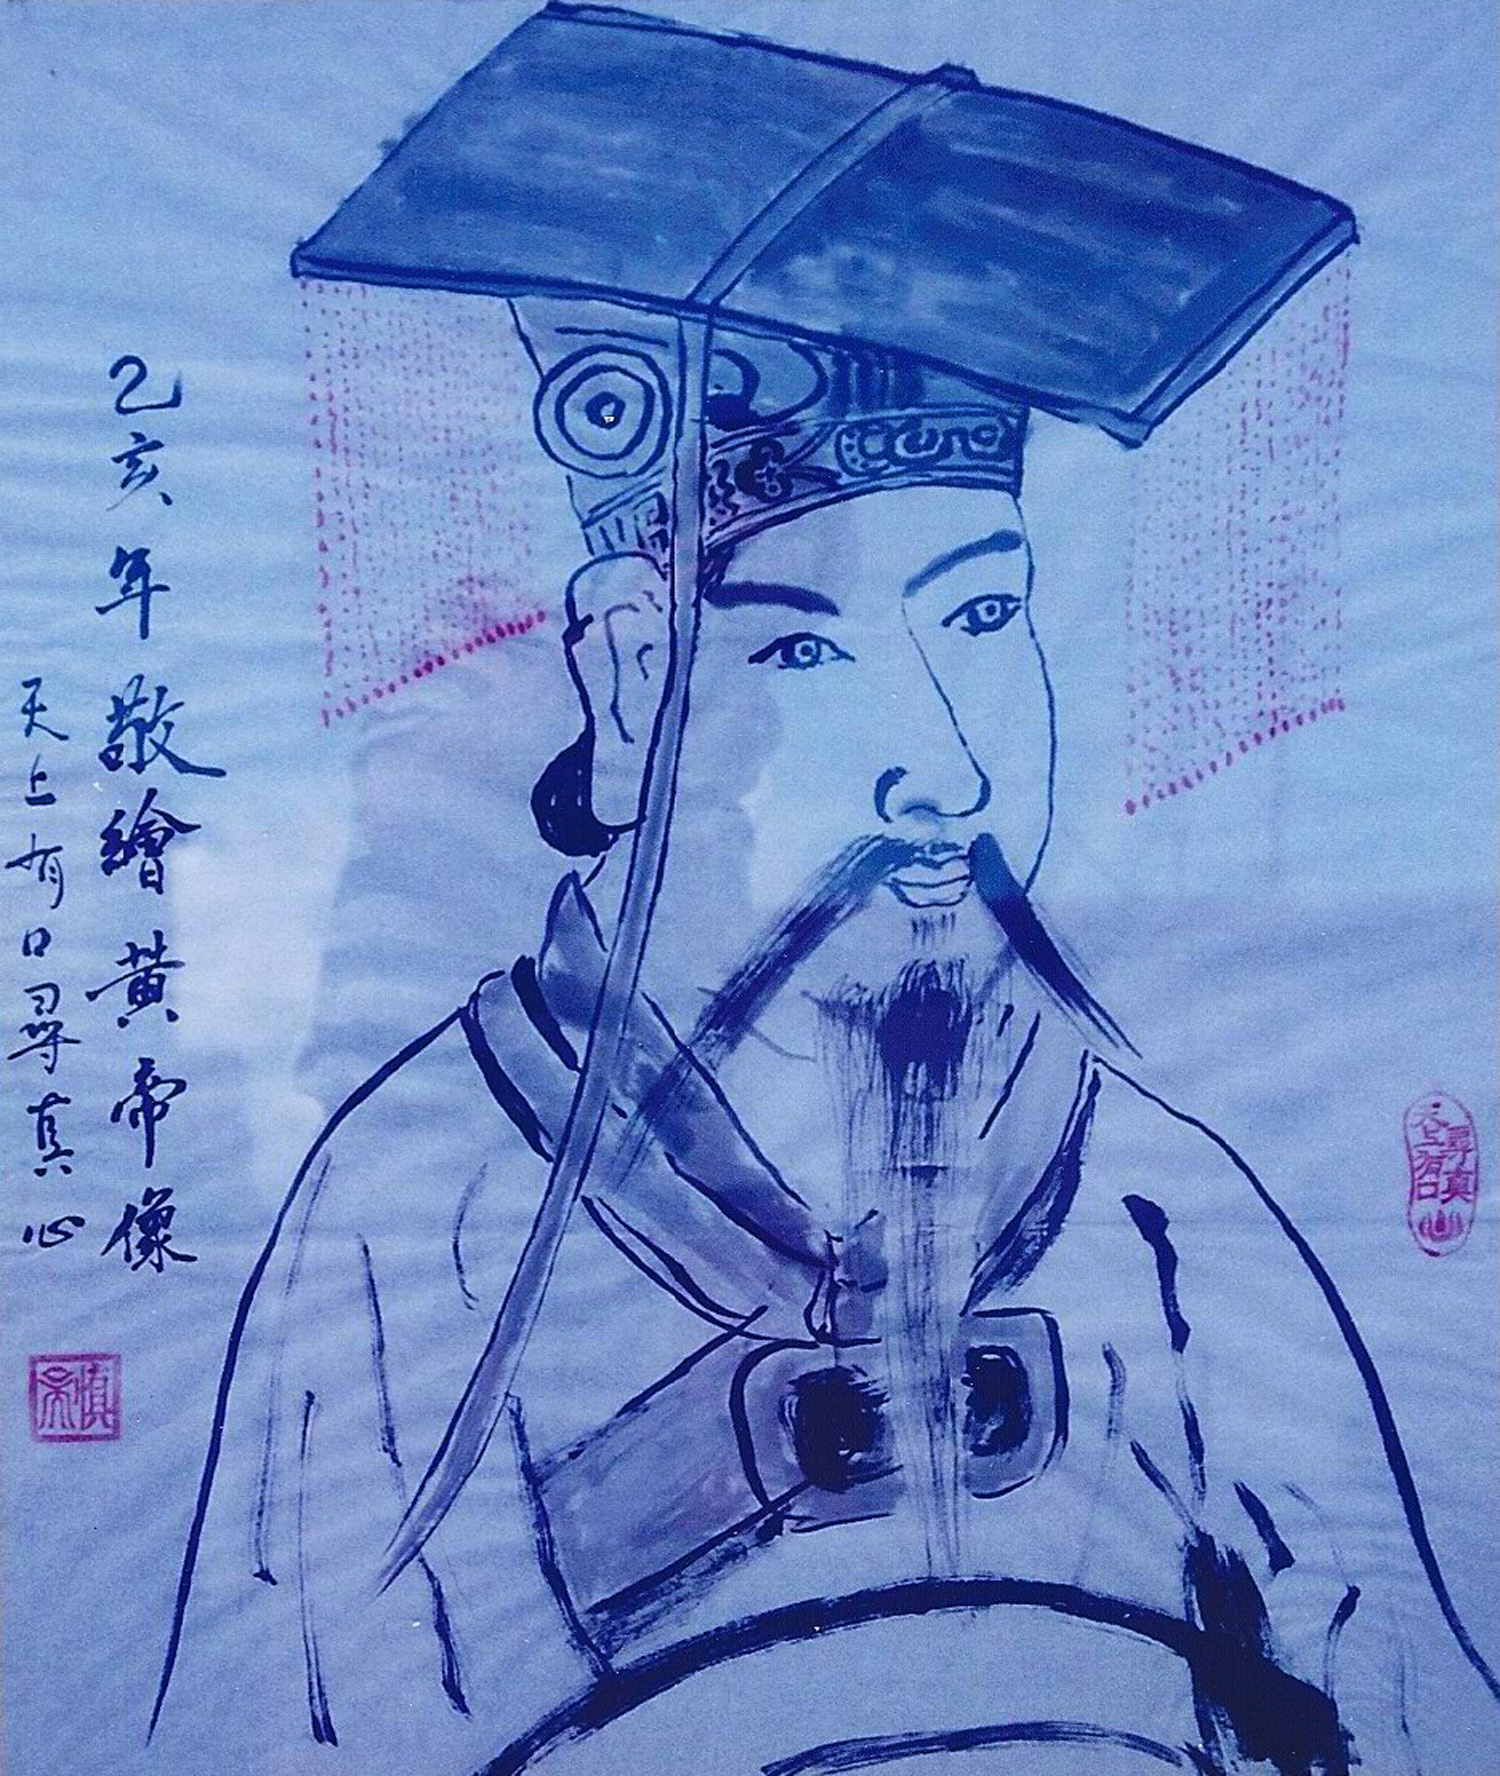 乙亥年敬繪黃帝像
天上有口尋真心
天上有口尋真心